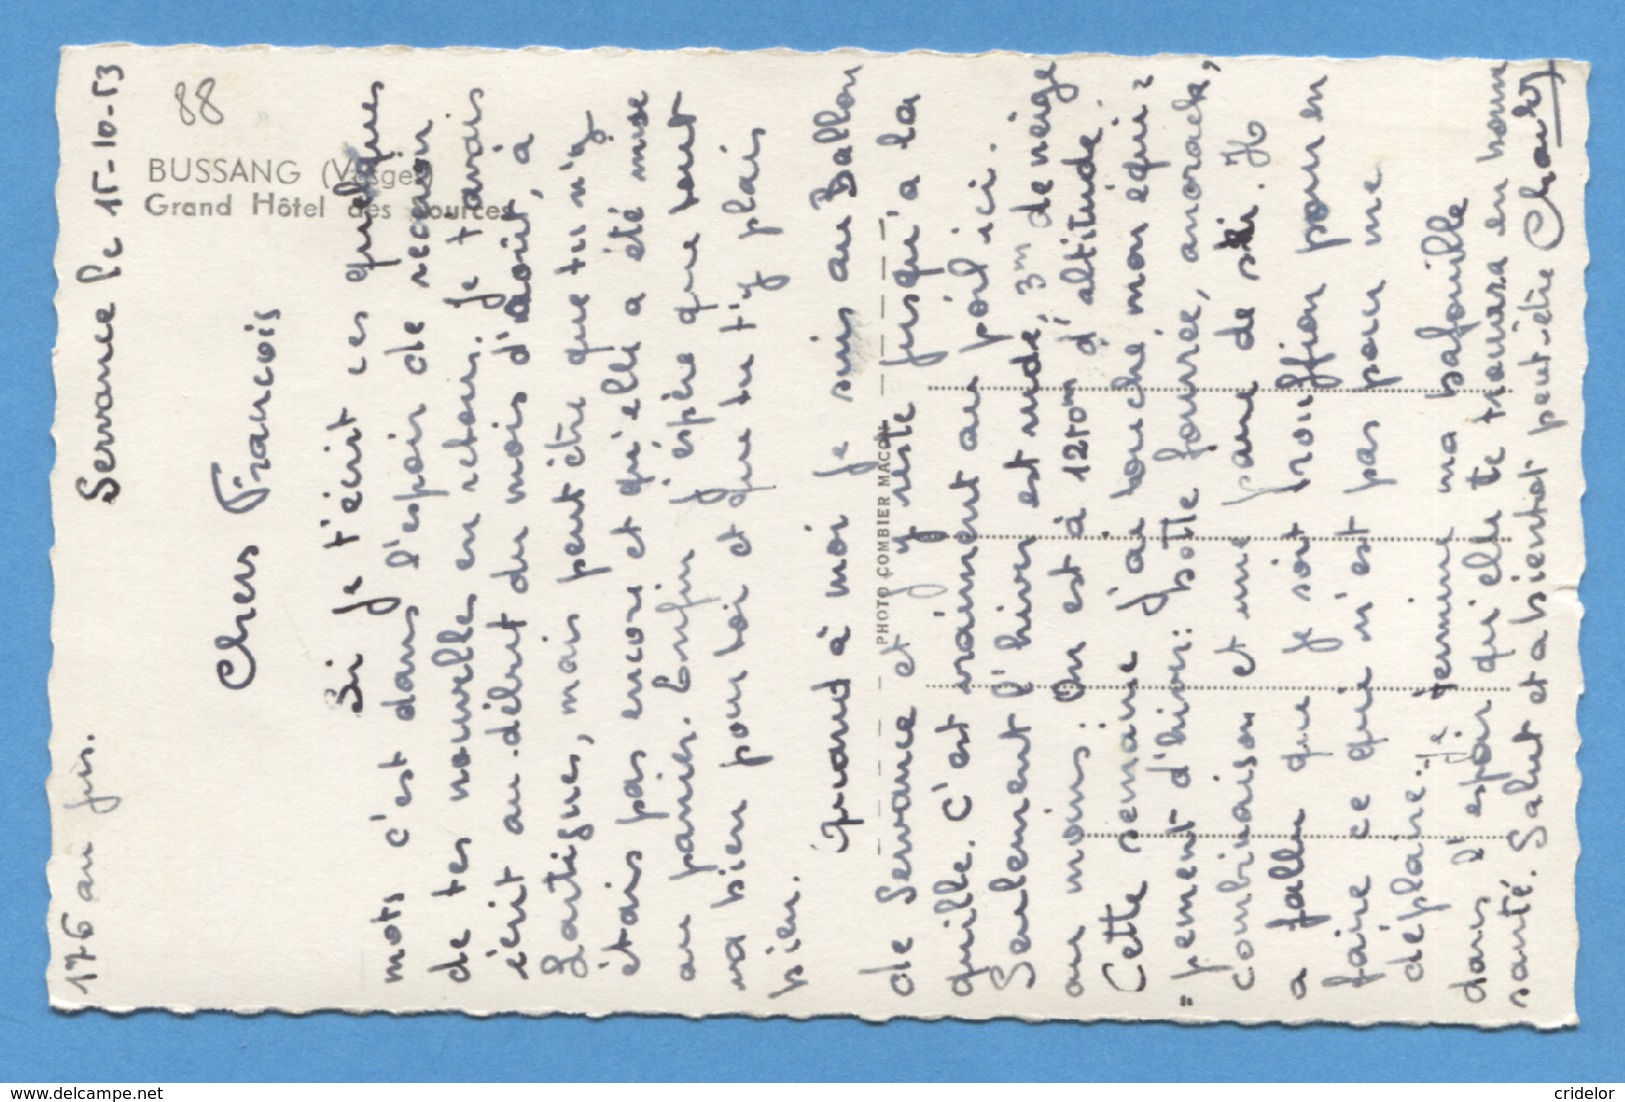 88
BUSSANG (Vosges)
Grand Hôtel des Sources
PHOTO COMBIER MACON
176 au jus.
Servance le 15-10-53
Chers François
Si je t'écrit ces quelques
mots c'est dans l'espoir de recevoir
de tes nouvelles en retour. Je t'avais
écrit au début du mois d'Août, à
Lartigues, mais peut être que tu n'y
étais pas encore et qu'elle a été mise
au panier. Enfin j'éspère que tout
va bien pour toi et que tu t'y plais
bien.
Quand à moi je suis au Ballon
de Servance et j'y reste jusqu'à la
quille. C'est vraiment au poil ici.
Seulement l'hiver est rude, 3m de neige
au moins: On est à 1210m d'altitude.
Cette semaine j'ai touché mon équi=
=pement d'hiver: botte fourrée, anorack,
combinaison et une paire de ski. Il
a fallu que je soit troufion pour en
faire ce qui n'est pas pour me
déplaire. Je termine ma bafouille
dans l'espoir qu'elle te trouvera en bonne
santé. Salut et a bientot peut-être Charly
www.delcampe.net
cridelor